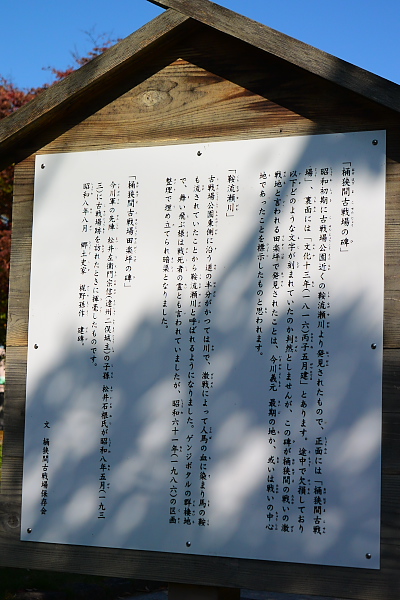 「桶狭間古戦場の碑」
昭和初期に古戦場公園近くの鞍流瀬川より発見されたもので、正面には「桶狭間古戦
場」、裏面には「文化十三年（一八一六）丙子五月建」とあります。途中で欠損しており
以下どのような文字が刻まれていたのか判然としませんが、この碑が桶狭間の戦いの激
戦地と言われる田楽坪で発見されたことは、今川義元 最期の地か、或いは戦いの中心
地であったことを標示したものと思われます。
「鞍流瀬川」
古戦場公園東側に沿う道の半分がかつては川で、激戦によって人馬の血に染まり馬の鞍
も流されていたことから鞍流瀬川と呼ばれるようになりました。ゲンジボタルの群棲地
で、舞い飛ぶ様は戦死者の霊とも言われていましたが、昭和六十一年（一九八六）の区画
整理で埋め立てられ暗渠となりました。
「桶狭間古戦場田楽坪の碑」
今川軍の先陣 松井左衛門宗信（遠州二俣城主）の子孫 松井石根氏が昭和八年五月（一九三
三）に古戦場跡を訪れたときに揮毫したものです。
昭和八年八月 郷土史家 梶野孫作 建碑。
文 桶狭間古戦場保存会